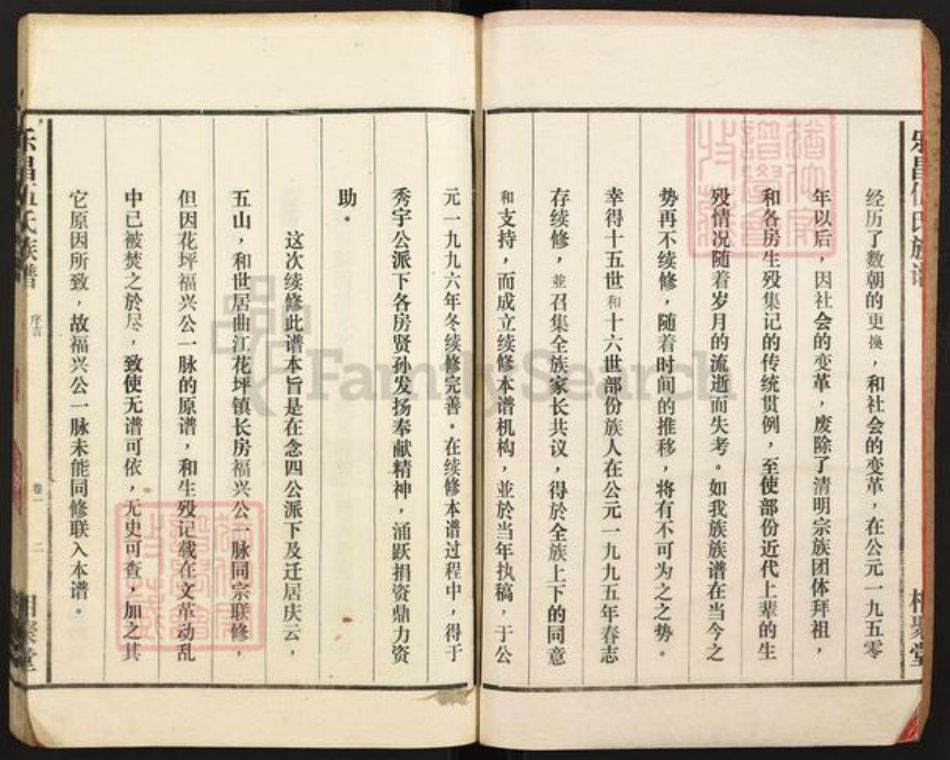 乐昌伍氏族谱
相聚堂
经历了数朝的更换，和社会的变革，在公元一九五零
年以后，因社会的变革，废除了清明宗族团体拜祖，
和各房生殁集记的传统贯例，至使部份近代上辈的生
殁情况随着岁月的流逝而失考。如我族族谱在当今之
势再不续修，随着时间的推移，将有不可为之之势。
幸得十五世和十六世部份族人在公元一九九五年春志
存续修，並召集全族家长共议，得於全族上下的同意
和支持，而成立续修本谱机构，並於当年执稿，于公
元一九九六年冬续修完善。在续修本谱过程中，得于
秀宇公派下各房贤孙发扬奉献精神，涌跃捐资鼎力资
助。
这次续修此谱本旨是在念四公派下及迁居庆云，
五山，和世居曲江花坪镇长房福兴公一脉同宗联修，
但因花坪福兴公一脉的原谱，和生殁记载在文革动乱
中已被焚之於尽，致使无谱可依，无史可查，加之其
它原因所致，故福兴公一脉未能同修联入本谱。
乐昌伍氏族谱
序言
卷一
二
相聚堂
FamilySearch